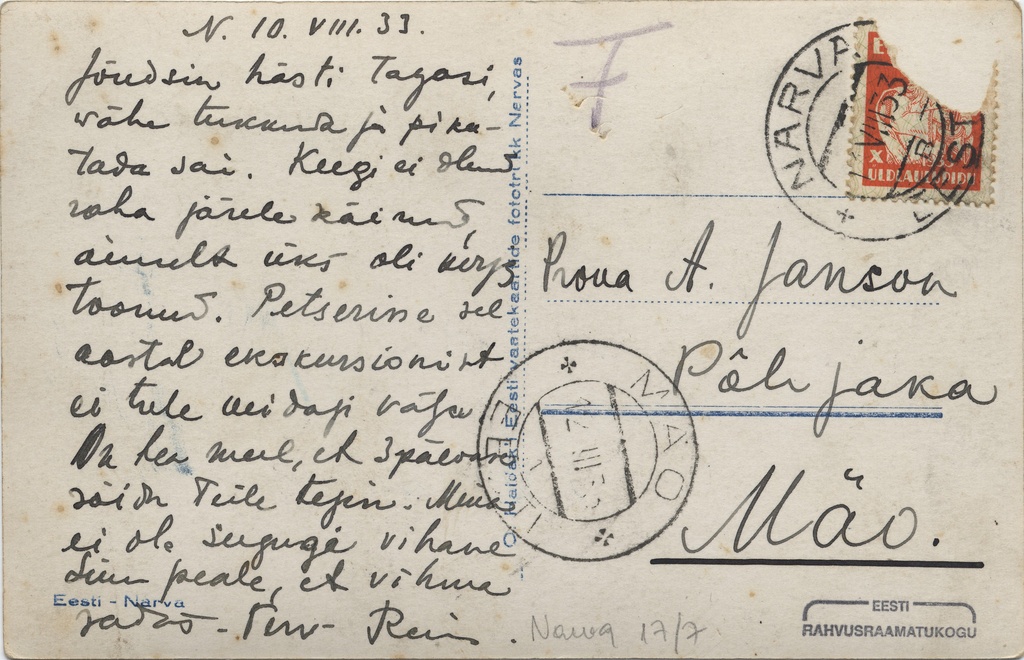 N. 10. VIII. 33.
Jõudsin hästi tagasi,
wähe tukkuda ja pika-
tada sai. Keegi ei olnud
raha järele käinud,
ainult üks oli
toonud. Petserisse sel
aastal ekskursionist
ei tule meidagi välja
On hea meel, et 3päevase
sõidu Teile tegin. Mina
ei ole sugugi vihane
Sinu peale, et vihma
sadas - Terv. Rein.
Eesti - Narva
Narva 17/7
Eesti vaatekaartide fototrükk Narvas
T
NARVA
EESTI
XI ÜLDLAULUPIDU
Proua A. Janson
Põhjaka
Mäo.
MÄO
EESTI
12 VIII 33
EESTI
RAHVUSRAAMATUKOGU